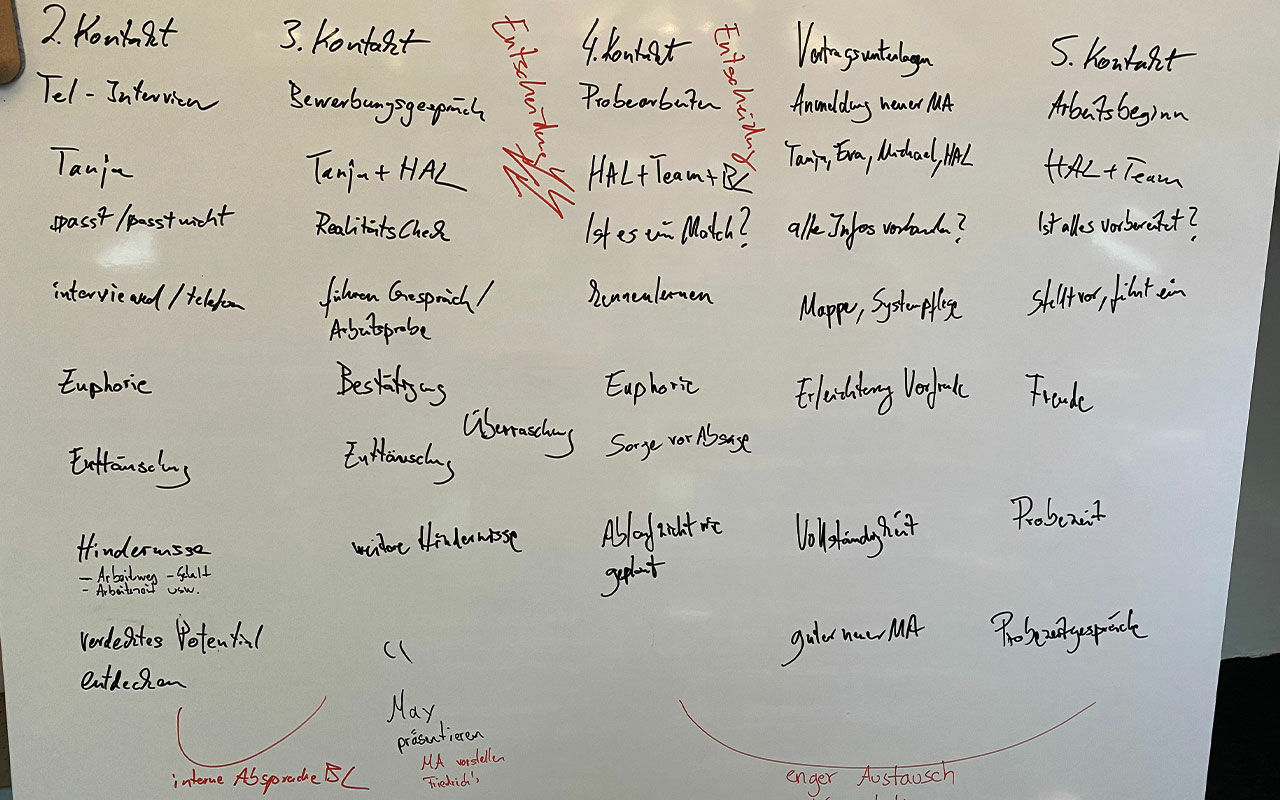 2. Kontakt
Tel - Interview
Tanja
passt / passt nicht
interviewed / telefon
Euphorie
Enttäuschg
Hindernisse
- Arbeitsweg - Gehalt
- Arbeitszeit usw.
verdecktes Potential
entdecken
interne Absprache BL
3. Kontakt
Bewerbungsgespräch
Tanja + HAL
RealitätsCheck
führen Gespräch /
Arbeitsprobe
Bestätigung
Überraschung
Enttäuschg
weitere Hindernisse
"
May
präsentieren
MA vorstellen
Friedrich's
Entscheidung
4. Kontakt
Probearbeiten
HAL + Team + BL
Ist es ein Match?
Kennenlernen
Euphorie
Sorge vor Absage
Ablauf nicht wie
geplant
Entscheidung
Vertragsunterlagen
Anmeldung neuer MA
Tanja, Eva, Michael, HAL
alle Infos vorhanden?
Mappe, Systempflege
Erleichterung Vorfreude
Vollständigkeit
guter neuer MA
5. Kontakt
Arbeitsbeginn
HAL + Team
Ist alles vorbereitet?
stellt vor, führt ein
Freude
Probezeit
Probezeitgespräche
enger Austausch